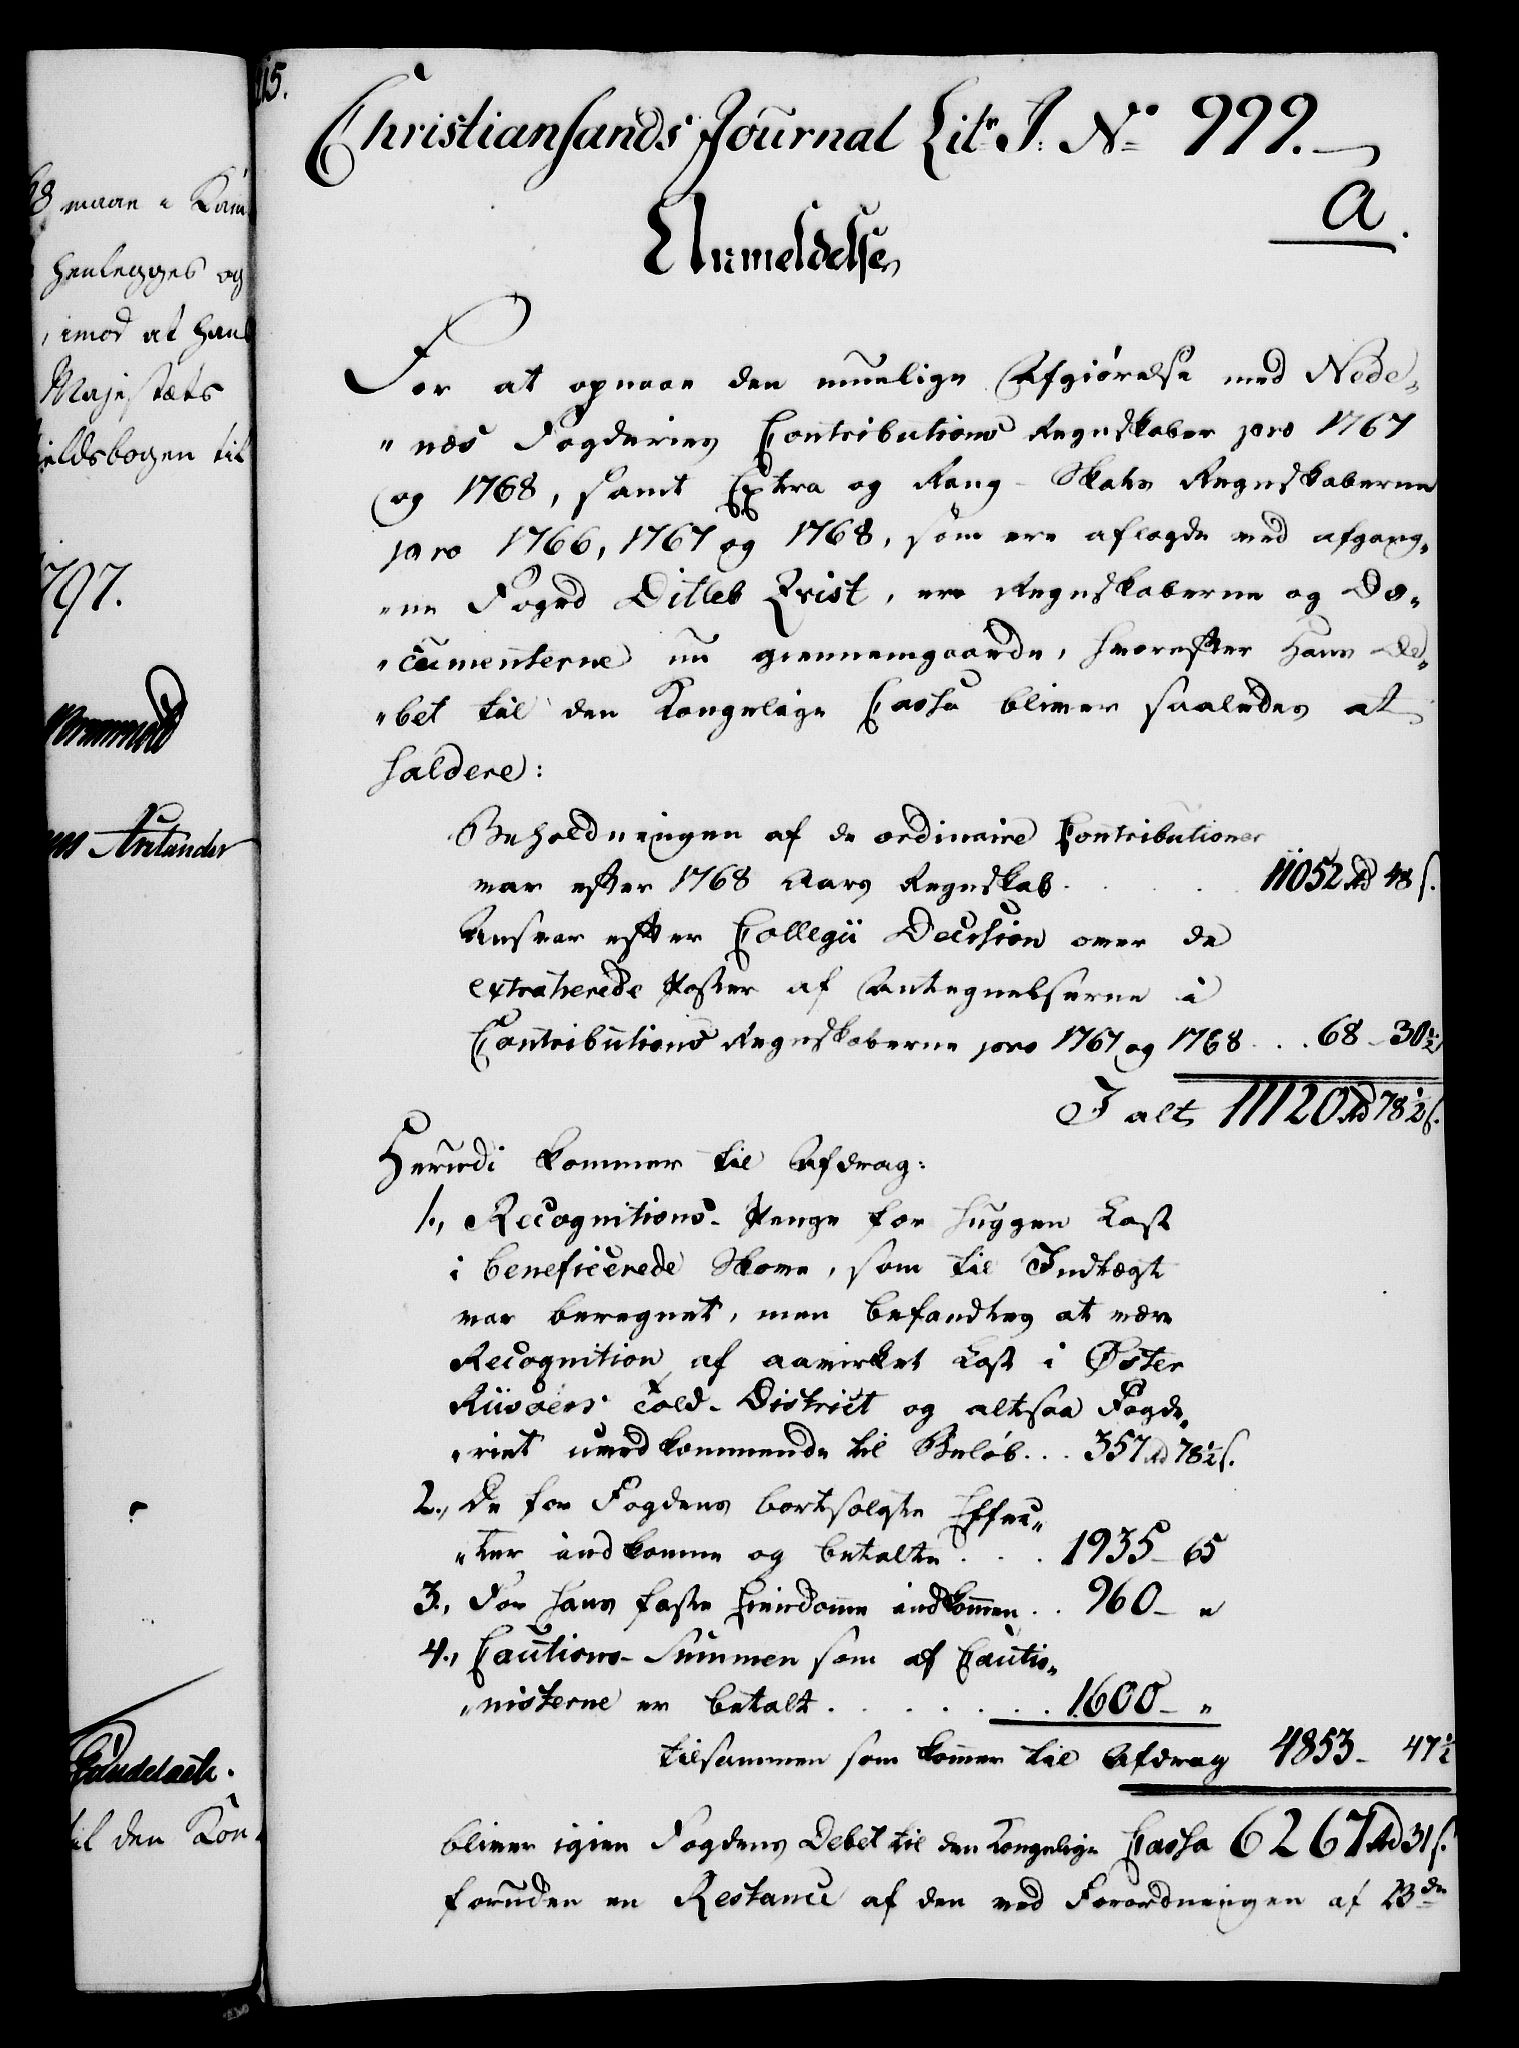 68 maae i Kam
henlegges og
, imod at han
Majestæts
ieldsbogen til
797.
til den Kon-
115.
Christiansands Journal Litr. J. No 999.
a.
Anmeldelse
For at opnaae den muelige Afgiørelse med Nede„
„næs Fogderies Contributions Regnskaber pro 1767
og 1768, samt Extra og Rang-Skats Regnskaberne
pro 1766, 1767 og 1768, som ere aflagde ved afgang„
„ne Foged Ditleb Qvist, ere Regnskaberne og Do„
„cumenterne nu giennemgaaede, hvorefter hans De„
„bet til den Kongelige Cassa bliver saaledes at
saldere:
Beholdningen af de ordinaire Contributioner
var efter 1768 Aars Regnskab . . . 11052 Rd 48 s.
Ansvar efter Collegii Decision over de
extraherede Poster af Antegnelserne i
Contributions Regnskaberne pro 1767 og 1768 . . . 68 - 30½
I alt 11120 Rd 78½ s.
Herudi kommer til Afdrag:
1., Recognitions-Penge for huggen Last
i beneficerede Skove, som til Indtægt
var beregnet, men befandtes at være
Recognition af aavirket Last i Øster
Riisøers Told-District og altsaa Fogde„
„riet uvedkommende til Beløb . . . 357 Rd 78½ s.
2., De for Fogdens bortsolgte Effec„
„ter indkomne og betalte . . . 1935 - 65
3., For hans faste Eiendomme indkommen . . 960 - „
4., Cautions-Summen som af Cautio„
„nisterne er betalt . . . . . . . 1600 - „
tilsammen som kommer til Afdrag 4853 - 47½
bliver igien Fogdens Debet til den Kongelige Cassa 6267 Rd 31 s.
foruden en Restance af den ved Forordningen af 23de